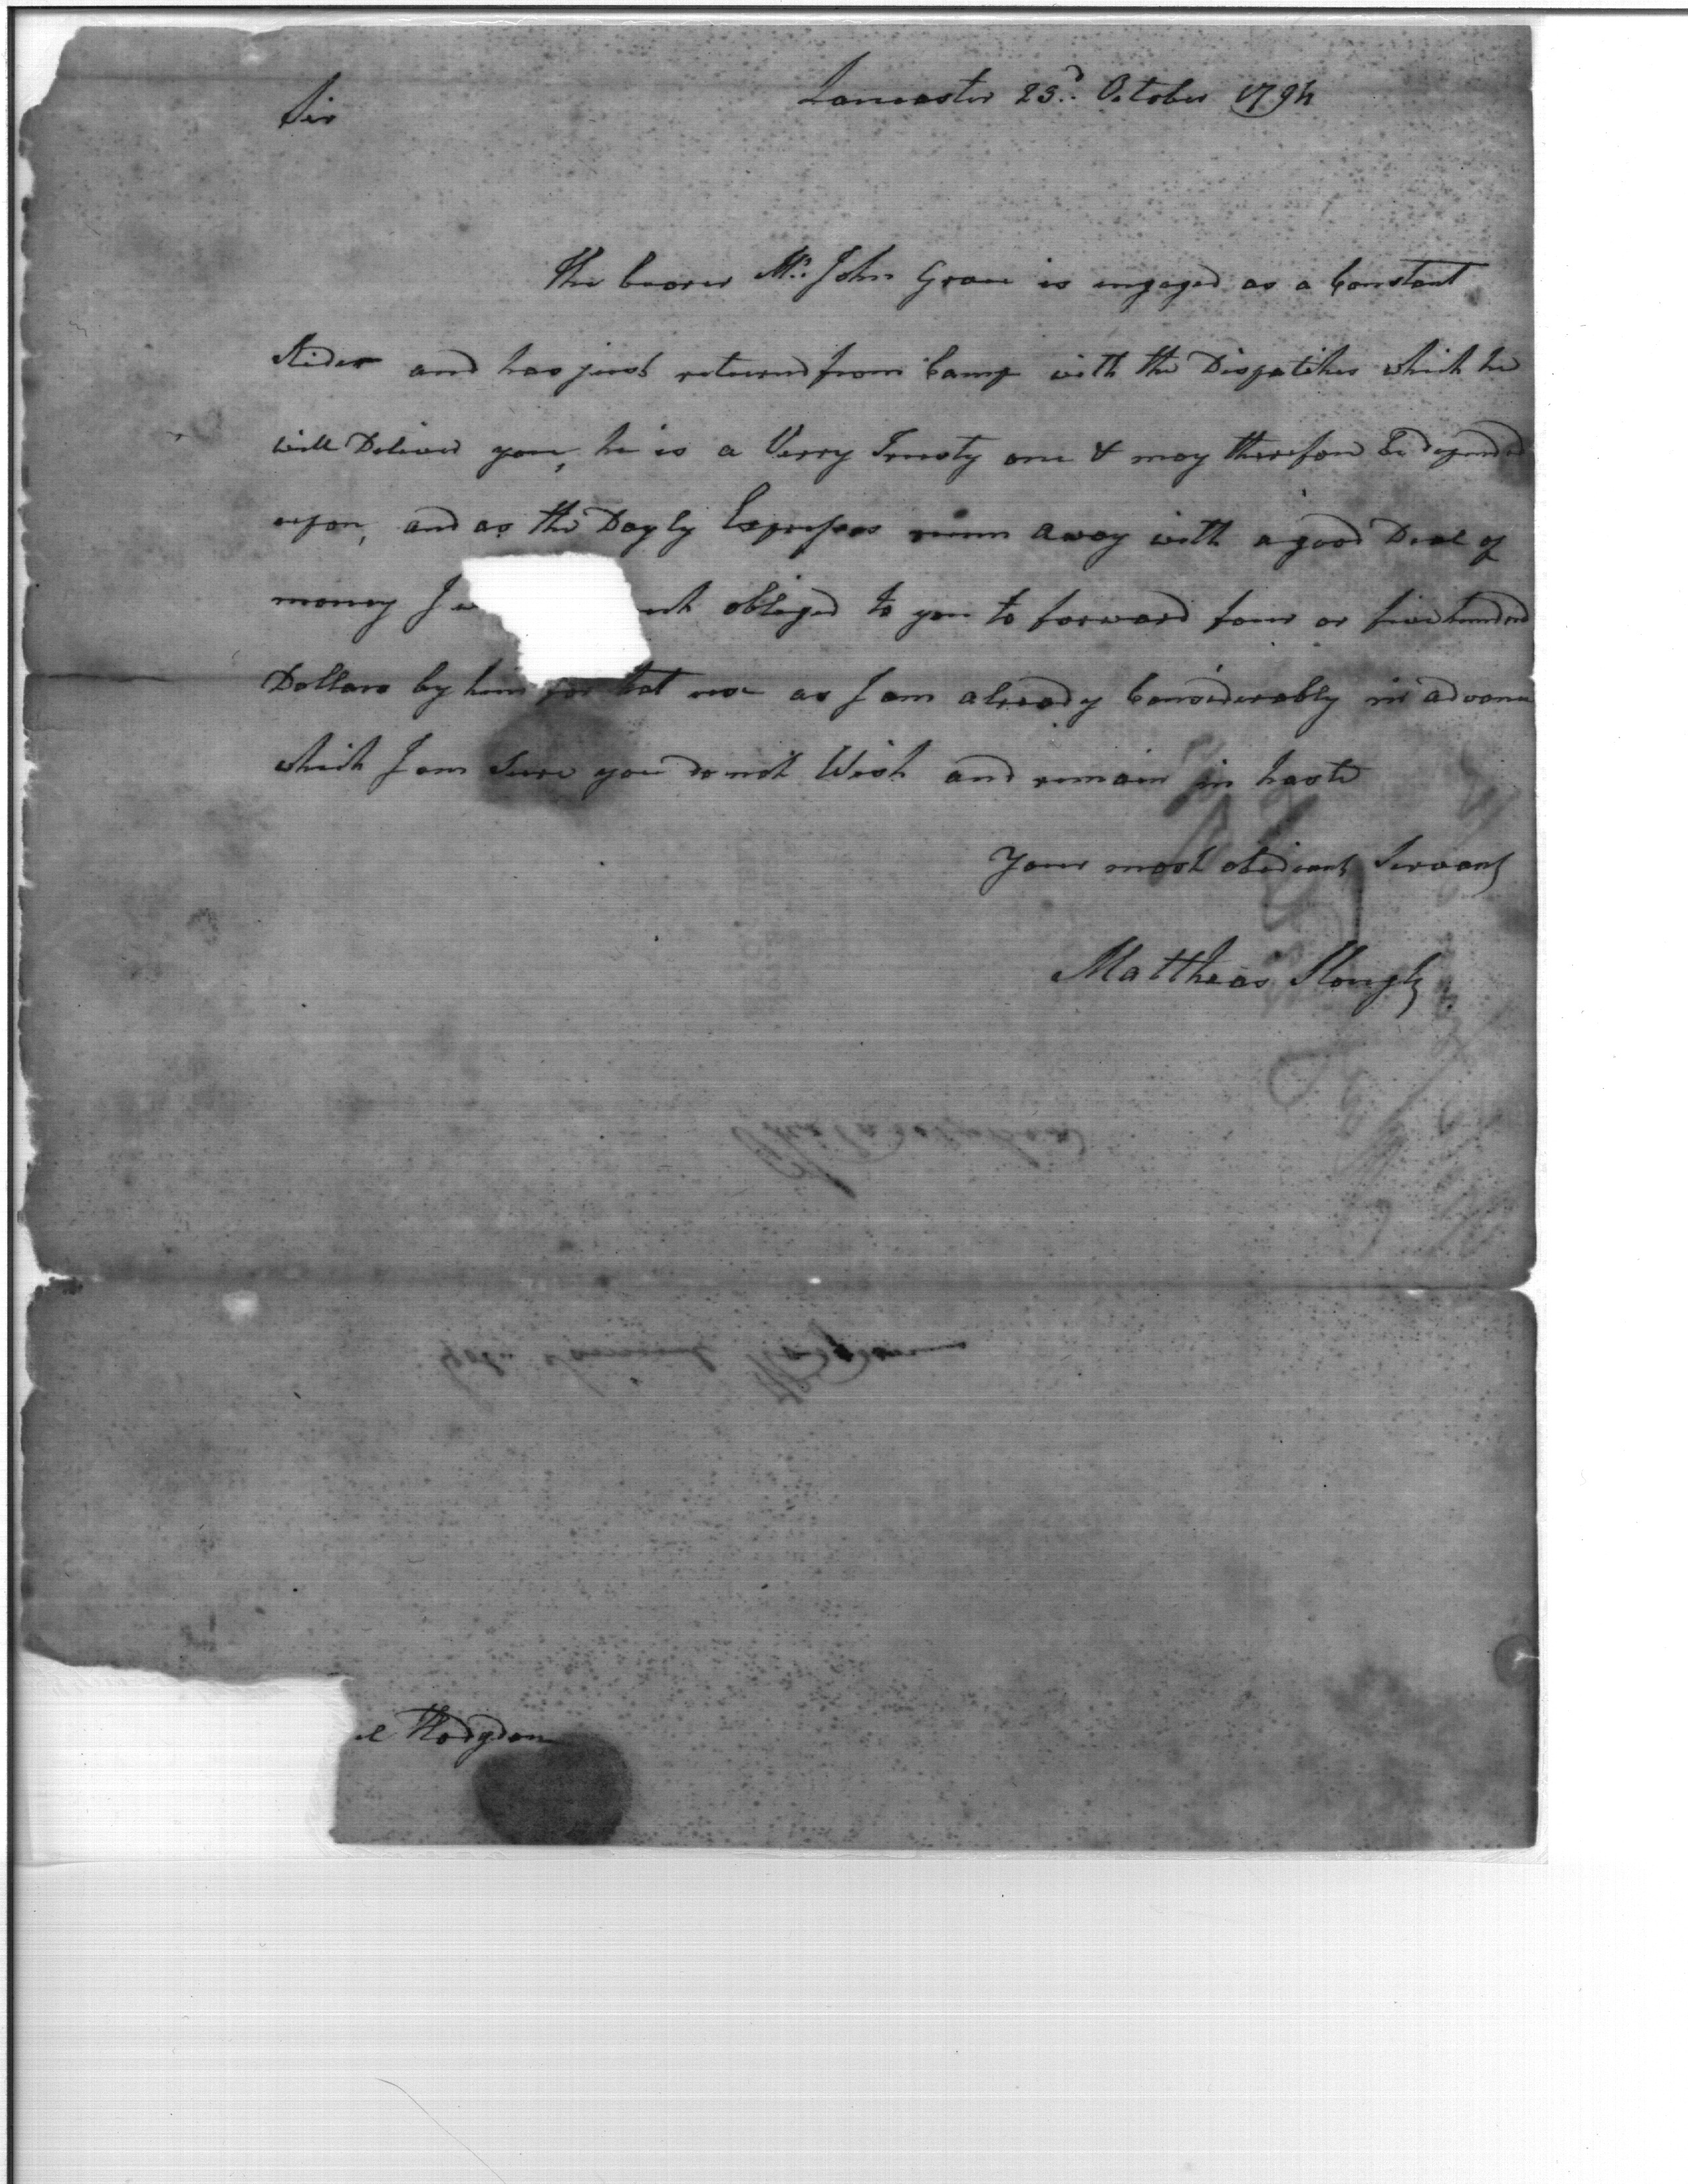 Lancaster 23.d October 1794
Sir
The bearer Mr. John Grove is engaged as a Constant
Rider and has just returned from Camp with the Dispatches which he
will Deliver you, he is a Verry Trusty one & may therefore be depended
upon, and as the Dayly Expresses runn away with a good Deal of
money I obliged to you to forward four or five hundred
Dollars by him for that use as I am already Considerably in advance
which I am Sure you do not Wish and remain in haste
Your most obedient Servant
Matthias Slough
Philadelphia
Samuel Hodgdon
el Hodgdon